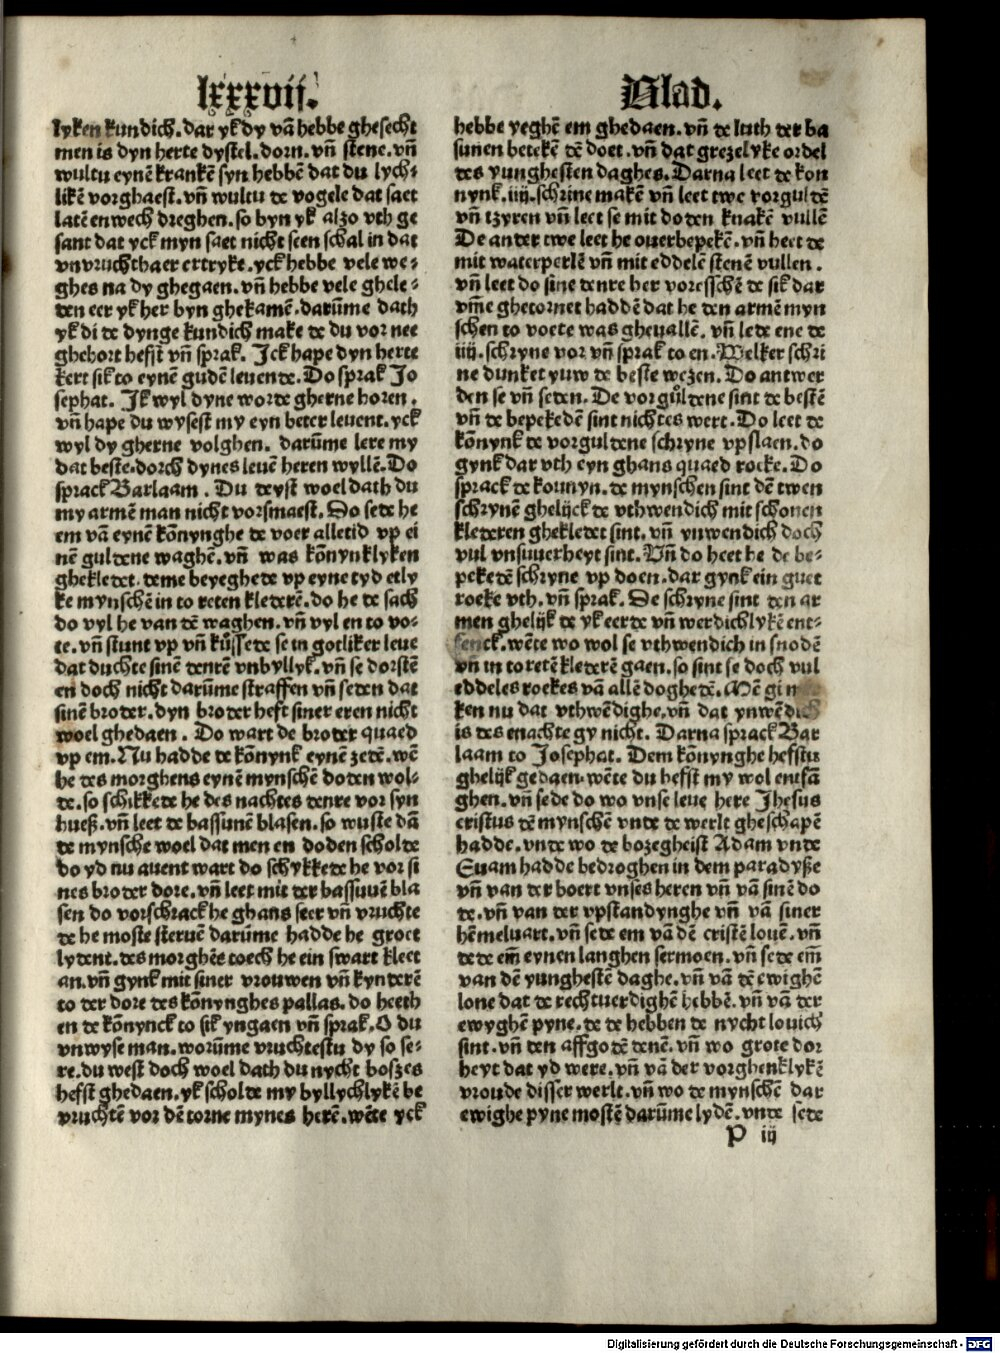 lxxxvij.
lyken kundich. dar yk dy vā hebbe ghesecht
men is dyn herte dystel. dorn. vn̄ stene. vn̄
wultu eynē krankē syn hebbē dat du lych⸗
likē vorghaest. vn̄ wultu de vogele dat saet
latē enwech dreghen. so byn yk alzo vth ge
sant dat yck myn saet nicht seen schal in dat
vnvruchthaer ertryke. yck hebbe vele we⸗
ghes na dy ghegaen. vn̄ hebbe vele ghele⸗
den eer yk her byn ghekamē. darūme dath
yk di de dynge kundich make de du vor nee
ghehort hefst vn̄ sprak. Ick hape dyn herte
kert sik to eynē gudē leuende. Do sprak Jo
sephat. Ik wyl dyne worde gherne horen.
vn̄ hape du wysest my eyn beter leuent. yck
wyl dy gherne volghen. darūme lere my
dat beste. dorch dynes leuē heren wyllē. Do
sprack Barlaam. Du deyst woel dath du
my armē man nicht vorsmaest. So sede he
em vā eynē kōnynghe de voer alletid vp ei
nē guldene waghē. vn̄ was kōnynklyken
ghekledet. deme beyeghede vp eyne tyd etly
ke mynschē in to reten klederē. do he de sach
do vyl he van dē waghen. vn̄ vyl en to vo⸗
te. vn̄ stunt vp vn̄ kůssede se in gotliker leue
dat duchte sinē denrē vnbyllyk. vn̄ se dorstē
en doch nicht darūme straffen vn̄ seden dat
sinē broder. dyn broder heft siner eren nicht
woel ghedaen. Do wart de broder quaed
vp em. Nu hadde de kōnynk eynē zedē. wē
he des morghens eynē mynschē doden wol⸗
de. so schikkede he des nachtes denre vor syn
hueß. vn̄ leet de bassunē blasen. so wuste dā
de mynsche woel dat men en doden scholde
do yd nu auent wart do schykkede he vor si
nes broder dore. vn̄ leet mit der bassuuē bla
sen do vorschrack he ghans seer vn̄ vruchte
de he moste steruē darūme hadde he groet
lydent. des morghēs toech he ein swart kleet
an. vn̄ gynk mit siner vrouwen vn̄ kynderē
to der dore des kōnynghes pallas. do heeth
en de kōnynck to sik yngaen vn̄ sprak. O du
vnwyse man. worūme vruchtestu dy so se⸗
re. du west doch woel dath du nycht boszes
hefst ghedaen. yk scholde my byllychlykē be
vruchtē vor dē torne mynes herē. wēte yck
Blad.
hebbe yeghē em ghedaen. vn̄ de luth der ba
sunen betekē dē doet. vn̄ dat grezelyke ordel
des yunghesten daghes. Darna leet de kon
nynk. iiij. schrine makē vn̄ leet twe vorguldē
vn̄ yzyren vn̄ leet se mit doden knakē vullē
De ander twe leet he ouerbepekē. vn̄ heet de
mit waterperlē vn̄ mit eddelē stenē vullen.
vn̄ leet do sine denre her voresschē de sik dar
vm̄e ghetornet haddē dat he den armē myn
schen to voete was gheuallē. vn̄ lede ene de
iiij. schryne vor vn̄ sprak to en. Welker schri
ne dunket yuw de beste wezen. Do antwer
den se vn̄ seden. De vorgůldene sint de bestē
vn̄ de bepekedē sint nichtes wert. Do leet de
kōnynk de vorguldene schryne vpslaen. do
gynk dar vth eyn ghans quaed rocke. Do
sprack de konnyn. de mynschen sint dē twen
schrynē ghelijck de vthwendich mit schonen
klederen ghekledet sint. vn̄ ynwendich doch
vul vnsuuerheyt sint. Vn̄ do heet he de be⸗
pekedē schryne vp doen. dar gynk ein guet
roeke vth. vn̄ sprak. De schryne sint den ar
men ghelijk de yk eerde vn̄ werdichlykē ent⸗
fenck. wēte wo wol se vthwendich in snodē
vn̄ in toretē klederē gaen. so sint se doch vul
eddeles roekes vā allē doghedē. Mē gi
ken nu dat vthwēdighe. vn̄ dat ynwēdich
is des enachte gy nicht. Darna sprack Bar
laam to Josephat. Dem kōnynghe hefstu
ghelijk gedaen. wēte du hefst my wol entfā
ghen. vn̄ sede do wo vnse leue here Jhesus
cristus dē mynschē vnde de werlt gheschapē
hadde. vnde wo de bozegheist Adam vnde
Euam hadde bedroghen in dem paradyße
vn̄ van der boert vnses heren vn̄ vā sinē do
de. vn̄ van der vpstandynghe vn̄ vā siner
hēmeluart. vn̄ sede em vā dē cristē louē. vn̄
dede em̄ eynen langhen sermoen. vn̄ sede em̄
van dē yunghestē daghe. vn̄ vā dē ewighē
lone dat de rechtuerdighē hebbē. vn̄ vā der
ewyghē pyne. de de hebben de nycht louich
sint. vn̄ den affgodē denē. vn̄ wo grote dor
heyt dat yd were. vn̄ vā der vorghenklykē
vroude disser werlt. vn̄ wo de mynschē dar
ewighe pyne mostē darūme lydē. vnde sede
P iij
Digitalisierung gefördert durch die Deutsche Forschungsgemeinschaft - DFG